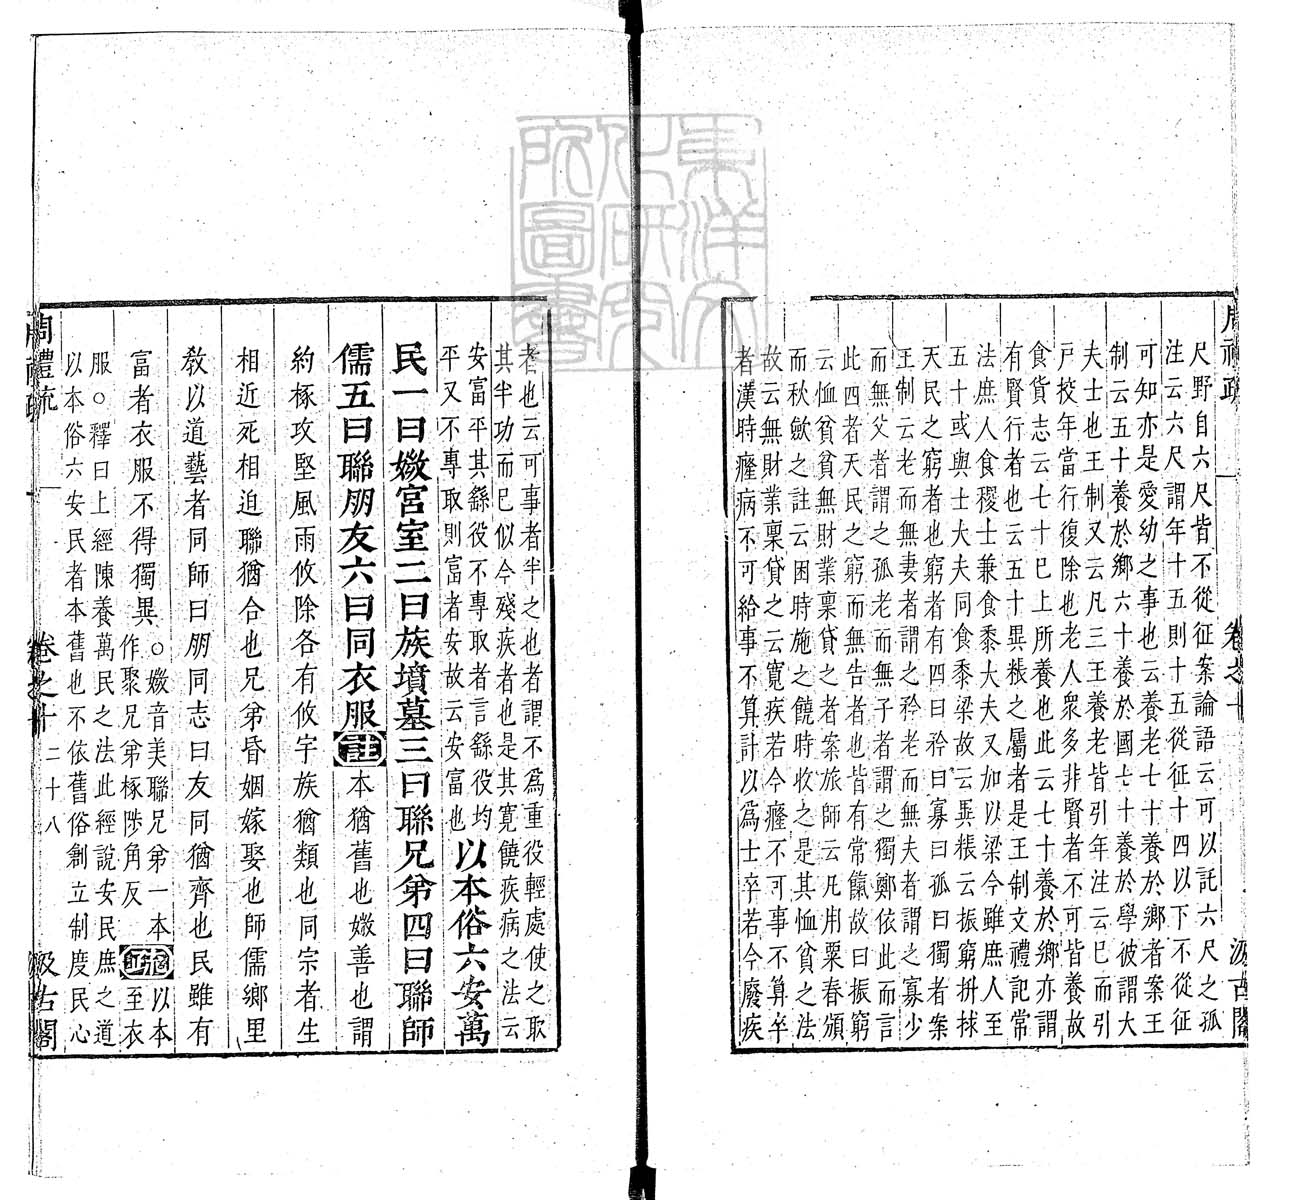 周禮疏 卷之十 汲古閣
尺野自六尺皆不從征案論語云可以託六尺之孤
注云六尺謂年十五則十五從征十四以下不從征
可知亦是愛幼之事也云養老七十養於鄉者案王
制云五十養於鄉六十養於國七十養於學彼謂大
夫士也王制又云凡三王養老皆引年注云已而引
戸校年當行復除也老人衆多非賢者不可皆養故
食貨志云七十巳上所養也此云七十養於鄉亦謂
有賢行者也云五十異粻之屬者是王制文禮記常
法庶人食稷士兼食黍大夫又加以梁今雖庶人至
五十或與士大夫同食黍梁故云異粻云振窮拼捄
天民之窮者也窮者有四曰矜曰寡曰孤曰獨者案
王制云老而無妻者謂之矜老而無夫者謂之寡少
而無父者謂之孤老而無子者謂之獨鄭依此而言
此四者天民之窮而無告者也皆有常餼故曰振窮
云恤貧貧無財業稟貸之者案旅師云凡用粟春頒
而秋斂之註云困時施之饒時收之是其恤貧之法
故云無財業稟貸之云寬疾若今癃不可事不算卒
者漢時癃病不可給事不算計以爲士卒若今廢疾
者也云可事者半之也者謂不爲重役輕處使之取
其半功而巳似今殘疾者也是其寬饒疾病之法云
安富平其繇役不專取者言繇役均
平又不專取則富者安故云安富也
以本俗六安萬
民一曰媺宮室二曰族墳墓三曰聯兄弟四曰聯師
儒五曰聯朋友六曰同衣服註本猶舊也媺善也謂
約椓攻堅風雨攸除各有攸宇族猶類也同宗者生
相近死相迫聯猶合也兄弟昏姻嫁娶也師儒鄉里
敎以道藝者同師曰朋同志曰友同猶齊也民雖有
富者衣服不得獨異
○媺音美聯兄弟一本
作聚兄弟椓陟角反
疏
以本
至衣
服○釋曰上經陳養萬民之法此經說安民庶之道
以本俗六安民者本舊也不依舊俗創立制度民心
周禮疏 卷之十 二十八 汲古閣
東洋文化研究所圖書